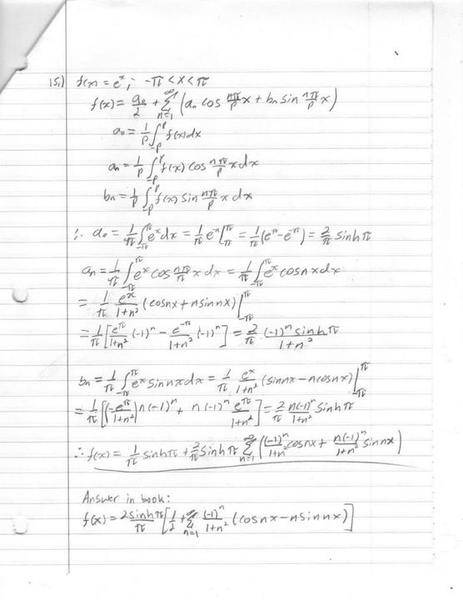 15.) f(x) = e^x ; -π < x < π
f(x) = a₀/2 + ∑_{n=1}^{∞} (aₙ cos nπ/p x + bₙ sin nπ/p x)
a₀ = 1/p ∫_{-p}^{p} f(x)dx
aₙ = 1/p ∫_{-p}^{p} f(x) cos nπ/p x dx
bₙ = 1/p ∫_{-p}^{p} f(x) sin nπ/p x dx
∴ a₀ = 1/π ∫_{-π}^{π} e^x dx = 1/π e^x |_{-π}^{π} = 1/π (e^π - e^{-π}) = 2/π sinhπ
aₙ = 1/π ∫_{-π}^{π} e^x cos nπ/π x dx = 1/π ∫_{-π}^{π} e^x cosnx dx
= 1/π e^x/(1+n²) (cosnx + nsinnx) |_{-π}^{π}
= 1/π [e^π/(1+n²) (-1)^n - e^{-π}/(1+n²) (-1)^n] = 2/π (-1)^n sinhπ/(1+n²)
bₙ = 1/π ∫_{-π}^{π} e^x sinnx dx = 1/π e^x/(1+n²) (sinnx - ncosnx) |_{-π}^{π}
= 1/π [(-e^π/(1+n²)) n(-1)^n + n(-1)^n e^π/(1+n²)] = 2/π n(-1)^n/(1+n²) sinhπ
∴ f(x) = 1/π sinhπ + 2/π sinhπ ∑_{n=1}^{∞} ((-1)^n/(1+n²) cosnx + n(-1)^n/(1+n²) sinnx)
Answer in book:
f(x) = 2sinhπ/π [1/2 + ∑_{n=1}^{∞} (-1)^n/(1+n²) (cosnx - nsinnx)]